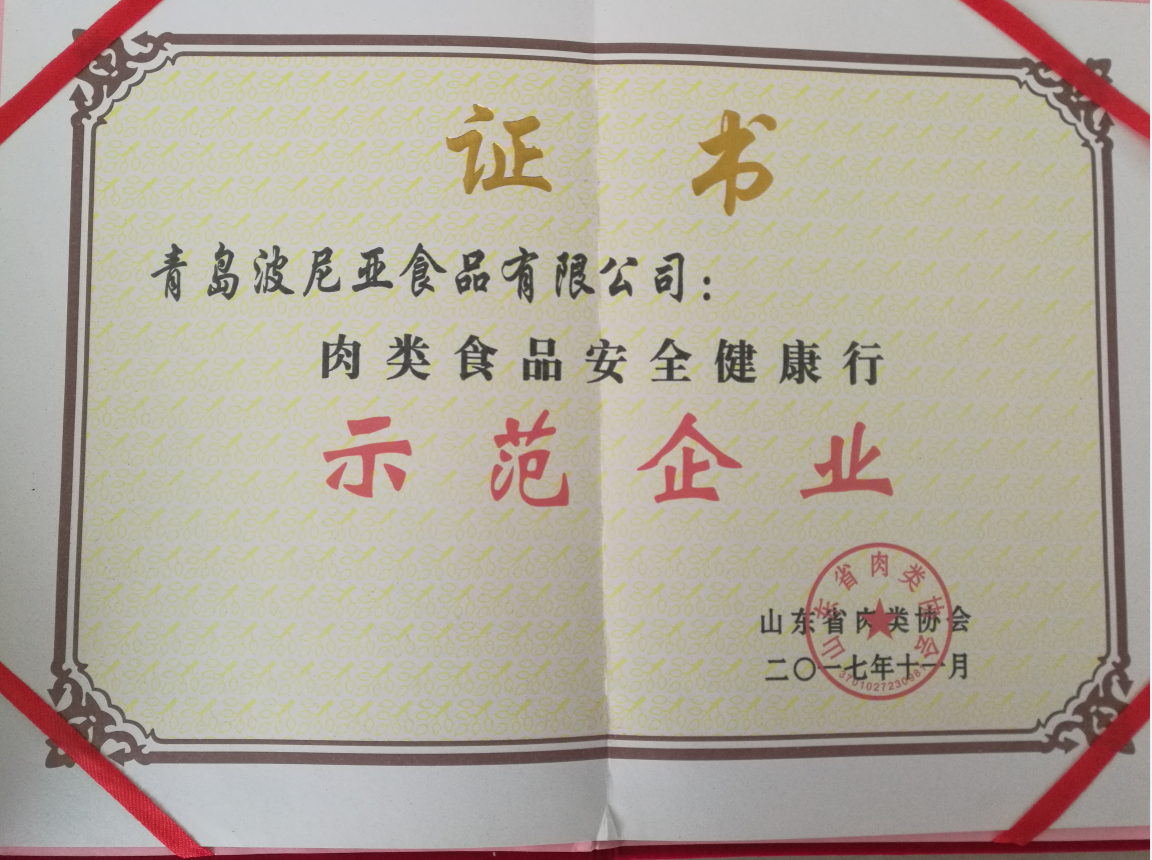 证书
青岛波尼亚食品有限公司：
肉类食品安全健康行
示范企业
山东省肉类协会
二〇一七年十一月
山东省肉类协会